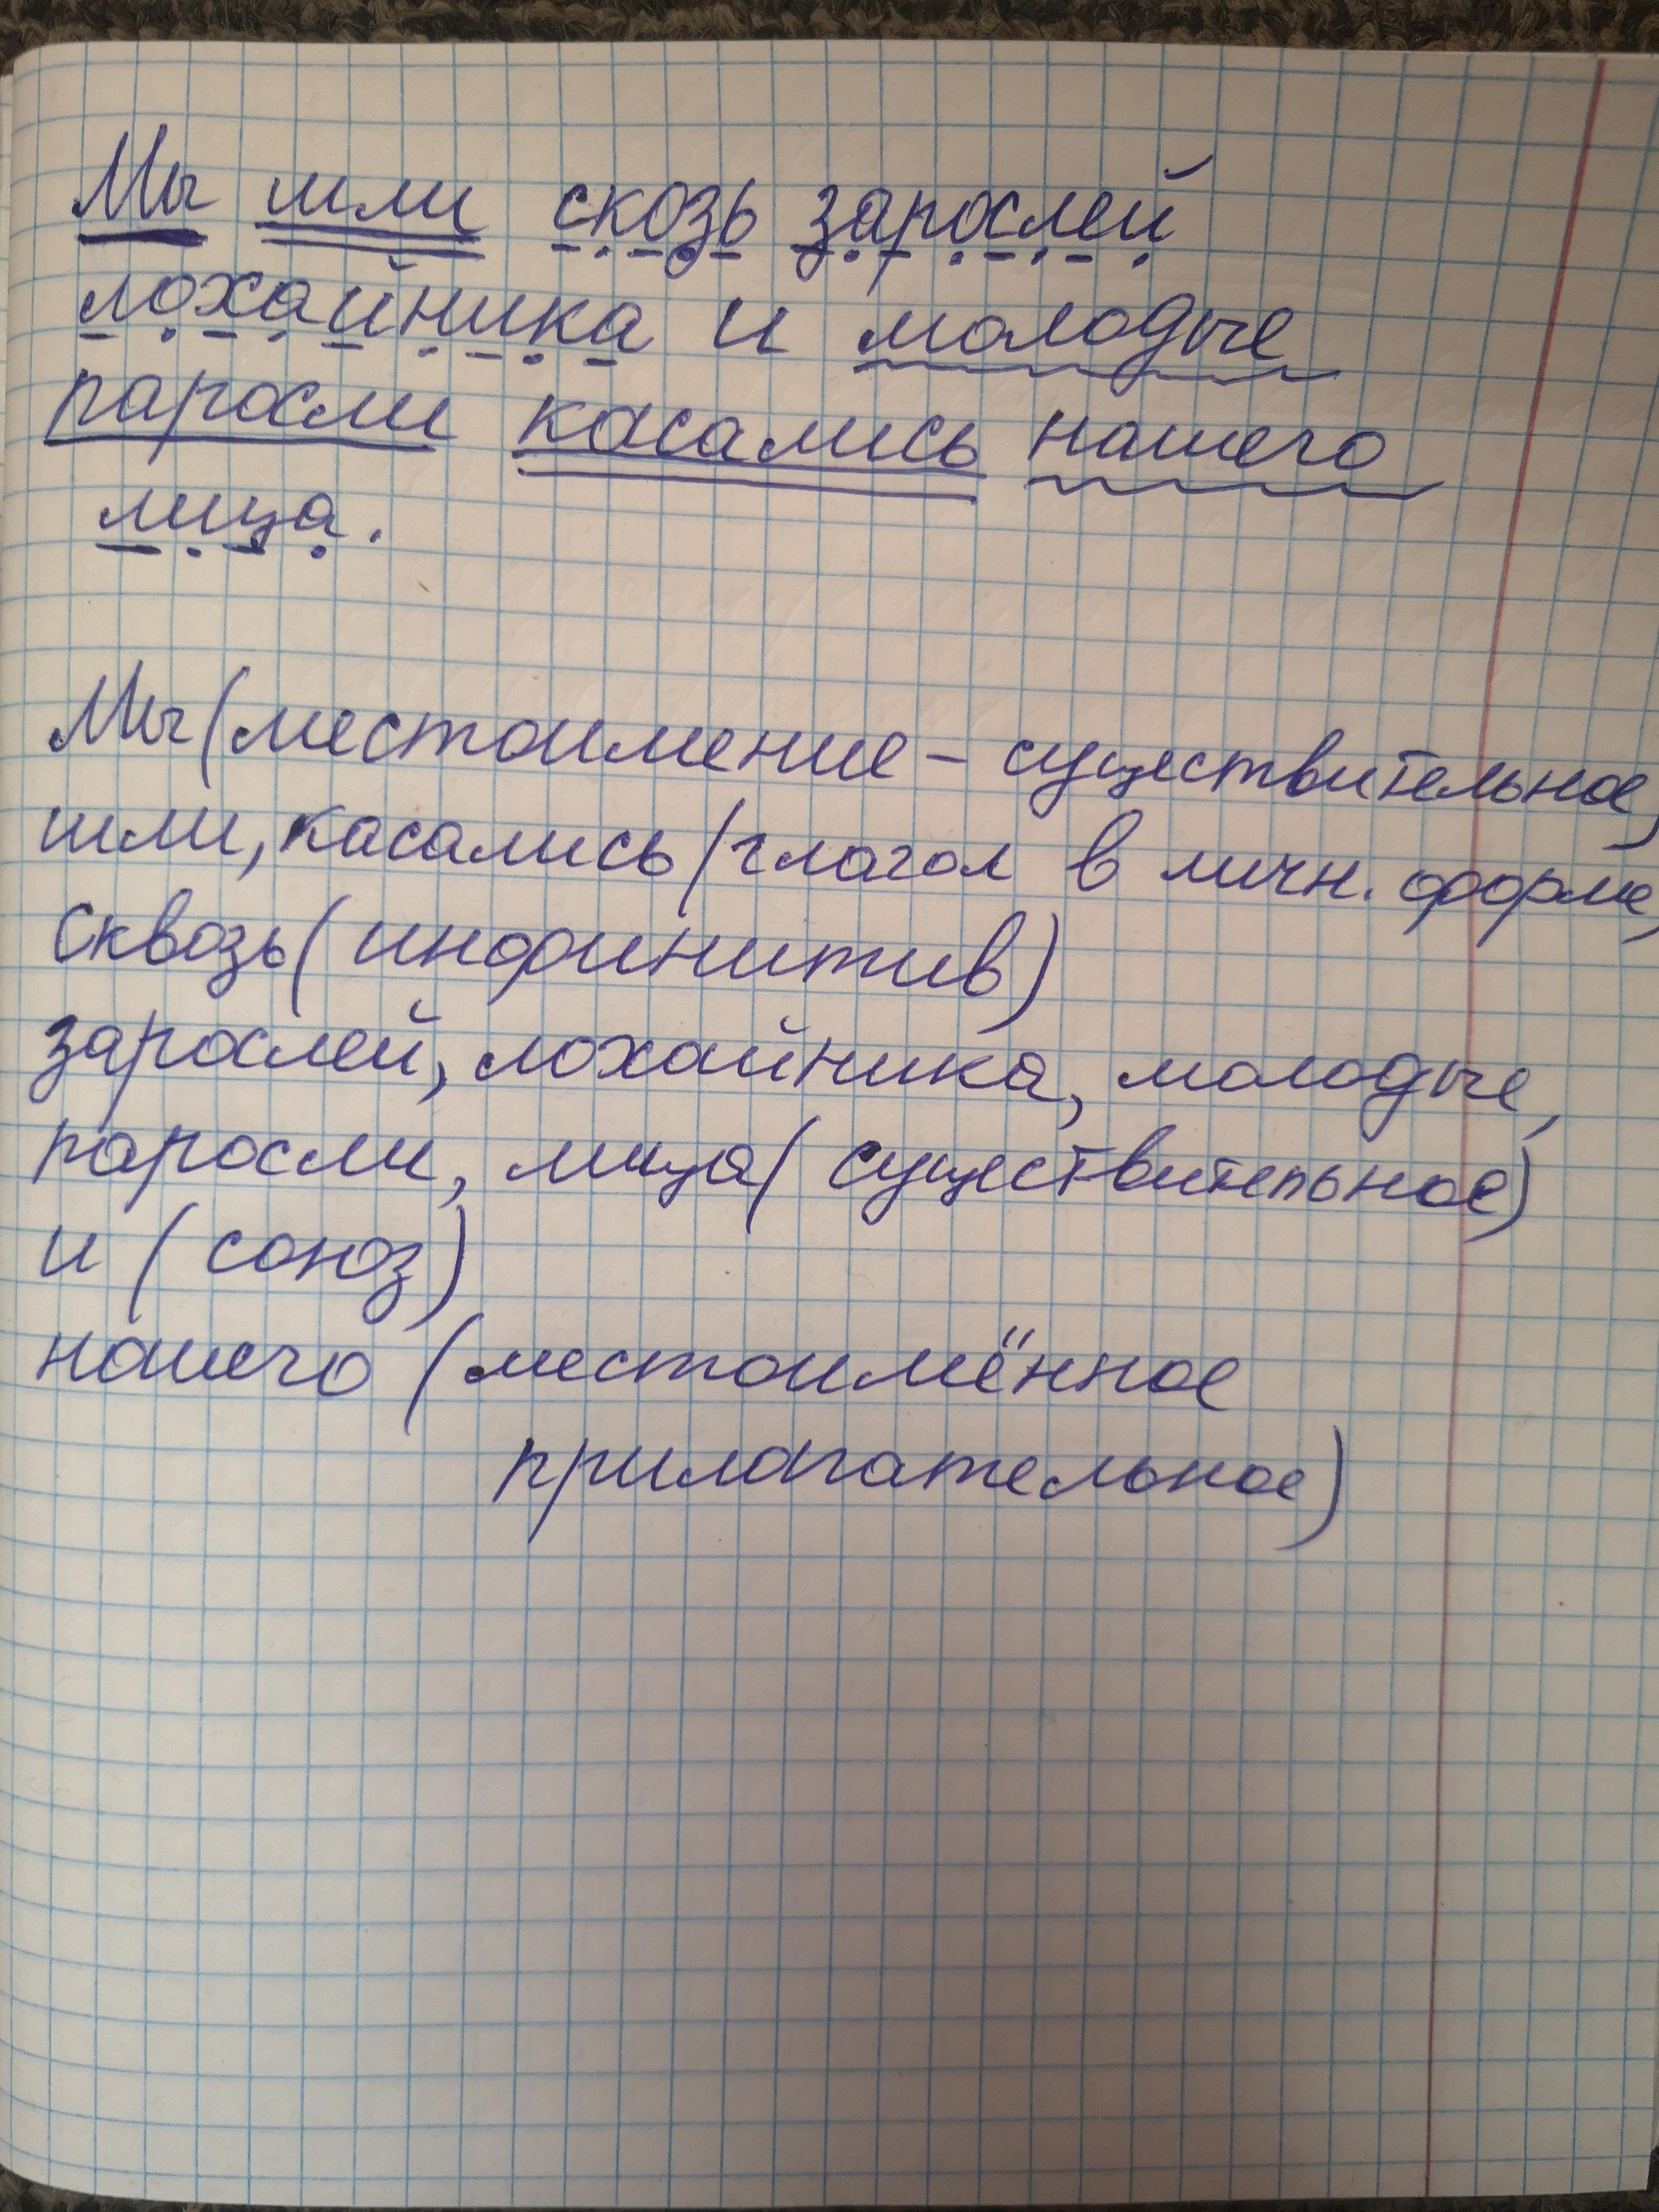 Мы шли скозь зарослей
лохайника и молодые
паросли касались нашего
лица.
Мы (местоимение - существительное)
шли, касались (глагол в личн. форме)
Сквозь (инфинитив)
зарослей, лохайника, молодые,
паросли, лица (существительное)
и (союз)
нашего (местоимённое
прилагательное)